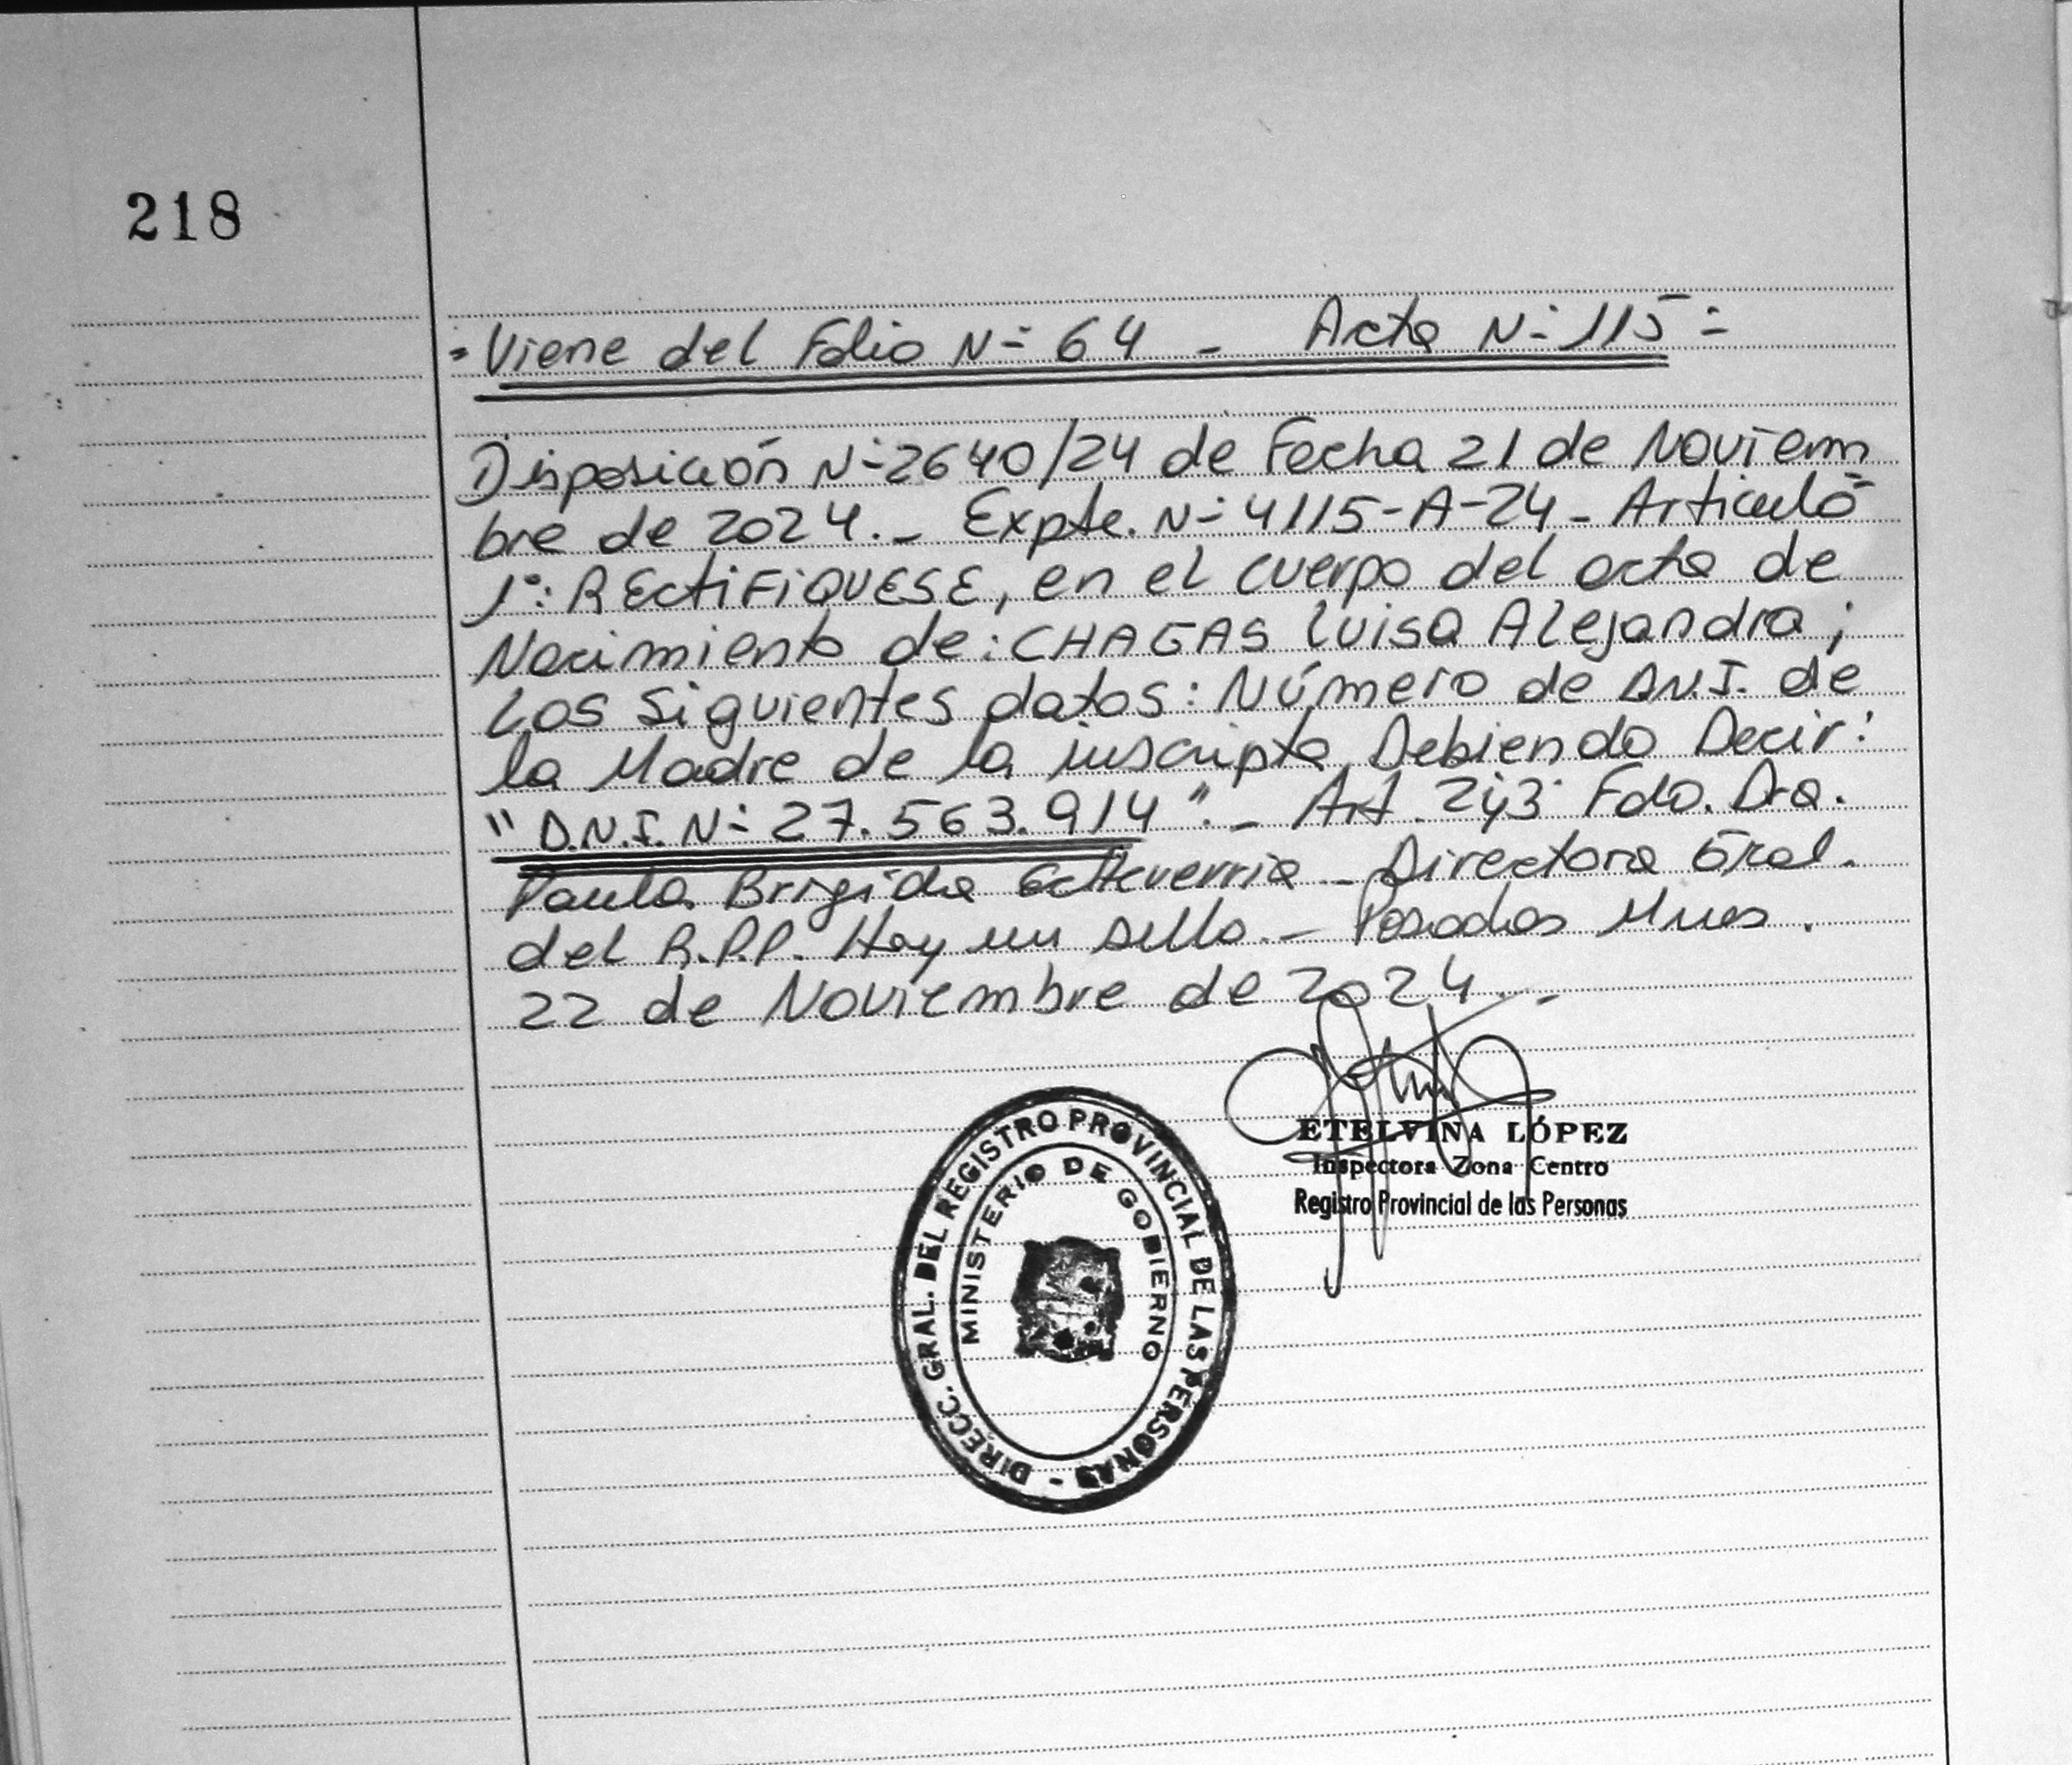 218
= Viene del Folio N= 64 - Acta N= 115 =
Disposición N=2640/24 de Fecha 21 de Noviem
bre de 2024.- Expte. N=4115-A-24- Articulo
1°: RECtiFiQUESE, en el cuerpo del acta de
Nacimiento de: CHAGAS Luisa Alejandra;
Los siguientes datos: Número de D.N.I. de
la Madre de la inscripta Debiendo Decir:
"D.N.I. N= 27.563.914".- Art. 2y3 Fdo. Dra.
Paula Brigida Echeverria - Directora Gral.
del R.P.P. Hay un sello.- Posadas Mnes.
22 de Noviembre de 2024.-
ETELVINA LÓPEZ
Inspectora Zona Centro
Registro Provincial de las Personas
DIRECC. GRAL. DEL REGISTRO PROVINCIAL DE LAS PERSONAS -
MINISTERIO DE GOBIERNO